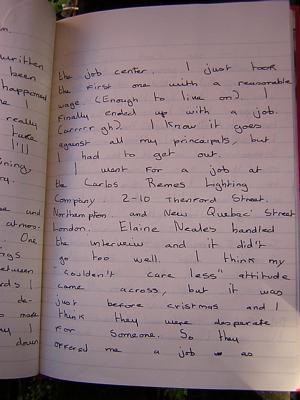 m.
written
been
happened
I
really
take
I'll
ining,
ry.
e and
atmos-
One
gs
between
rds I
de-
made
y I
down
the job center. I just took
the first one with a reasonable
wage. (Enough to live on). I
finally ended up with a job.
(arrrr gh). I know it goes
against all my principals, but
I had to get out.
I went for a job at
the Carlos Remes Lighting
Company. 2-10 Thenford Street.
Northampton and New Quebac Street
London. Elaine Neales handled
the interview and it did't
go too well. I think my
"couldn't care less" attitude
came across, but it was
just before cristmas and I
think they were desparate
for someone. So they
offered me a job as